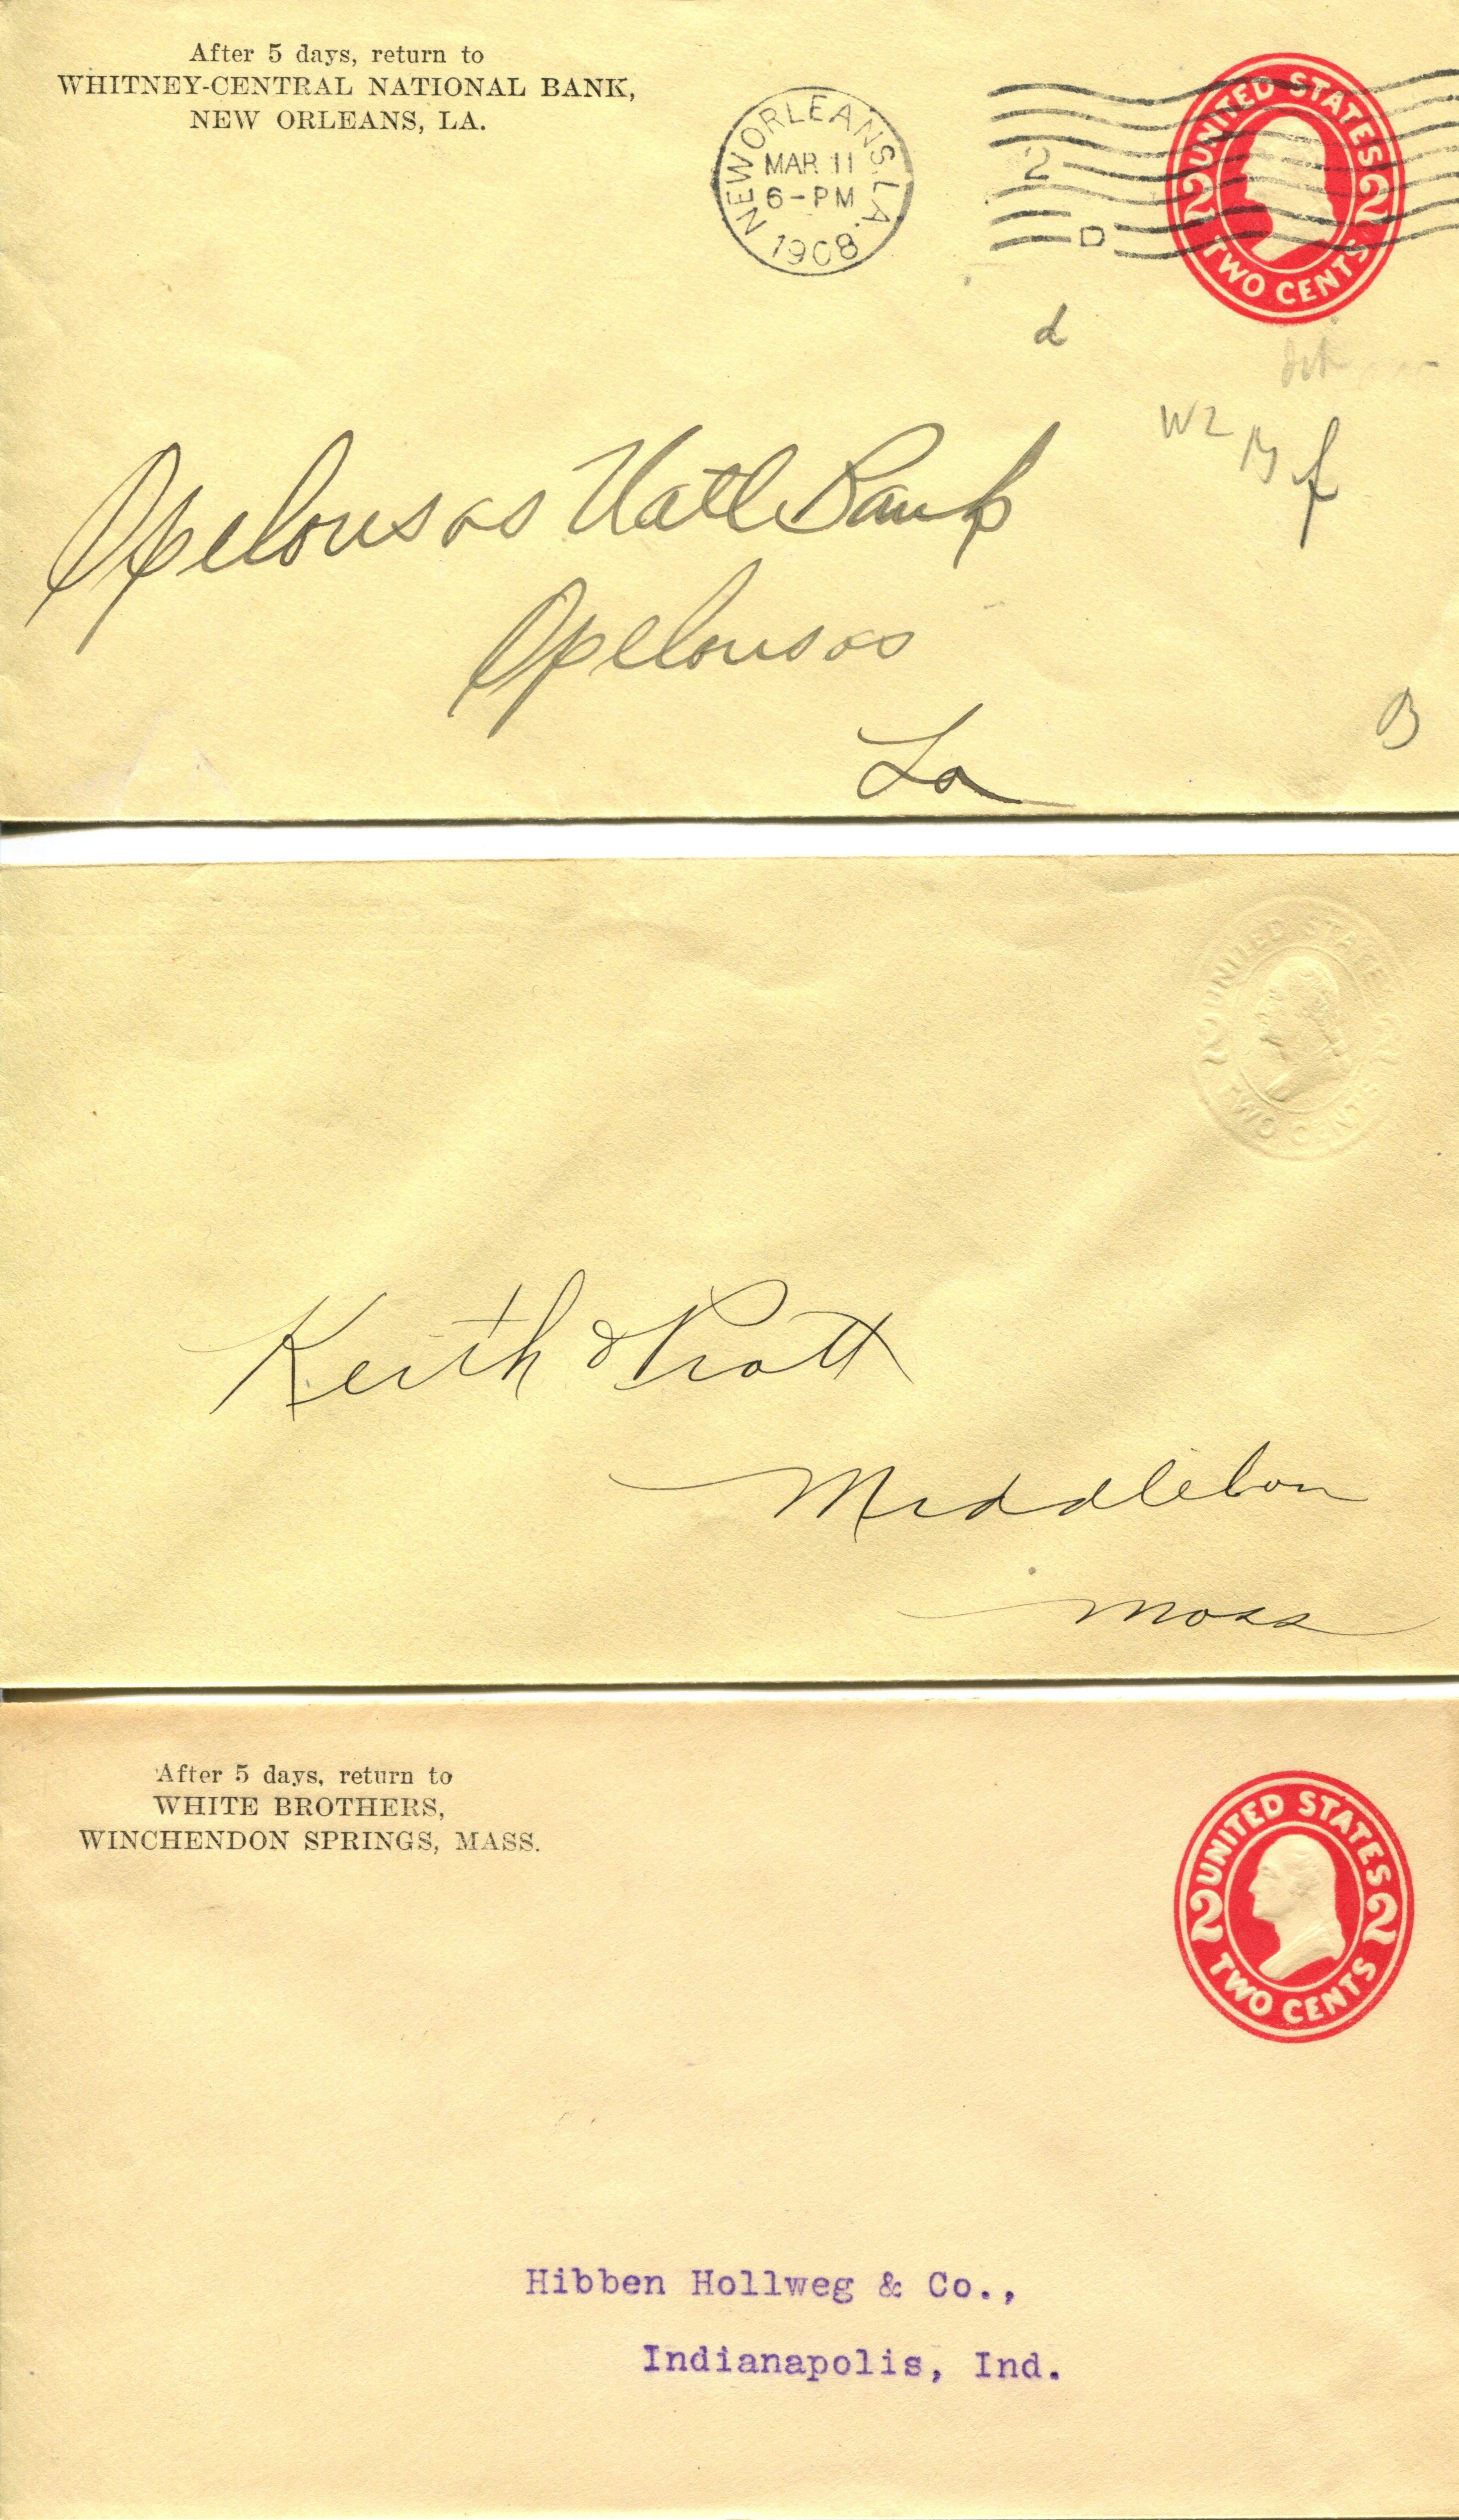 After 5 days, return to
WHITNEY-CENTRAL NATIONAL BANK,
NEW ORLEANS, LA.
NEW ORLEANS, LA.
MAR 11
6-PM
1908
2
D
UNITED STATES
2 2
TWO CENTS
d
W2
f
Opelousas Natl Bank
Opelousas
La
B
UNITED STATES
2 2
TWO CENTS
Keith & Pratt
Middleboro
Mass
After 5 days, return to
WHITE BROTHERS,
WINCHENDON SPRINGS, MASS.
UNITED STATES
2 2
TWO CENTS
Hibben Hollweg & Co.,
Indianapolis, Ind.